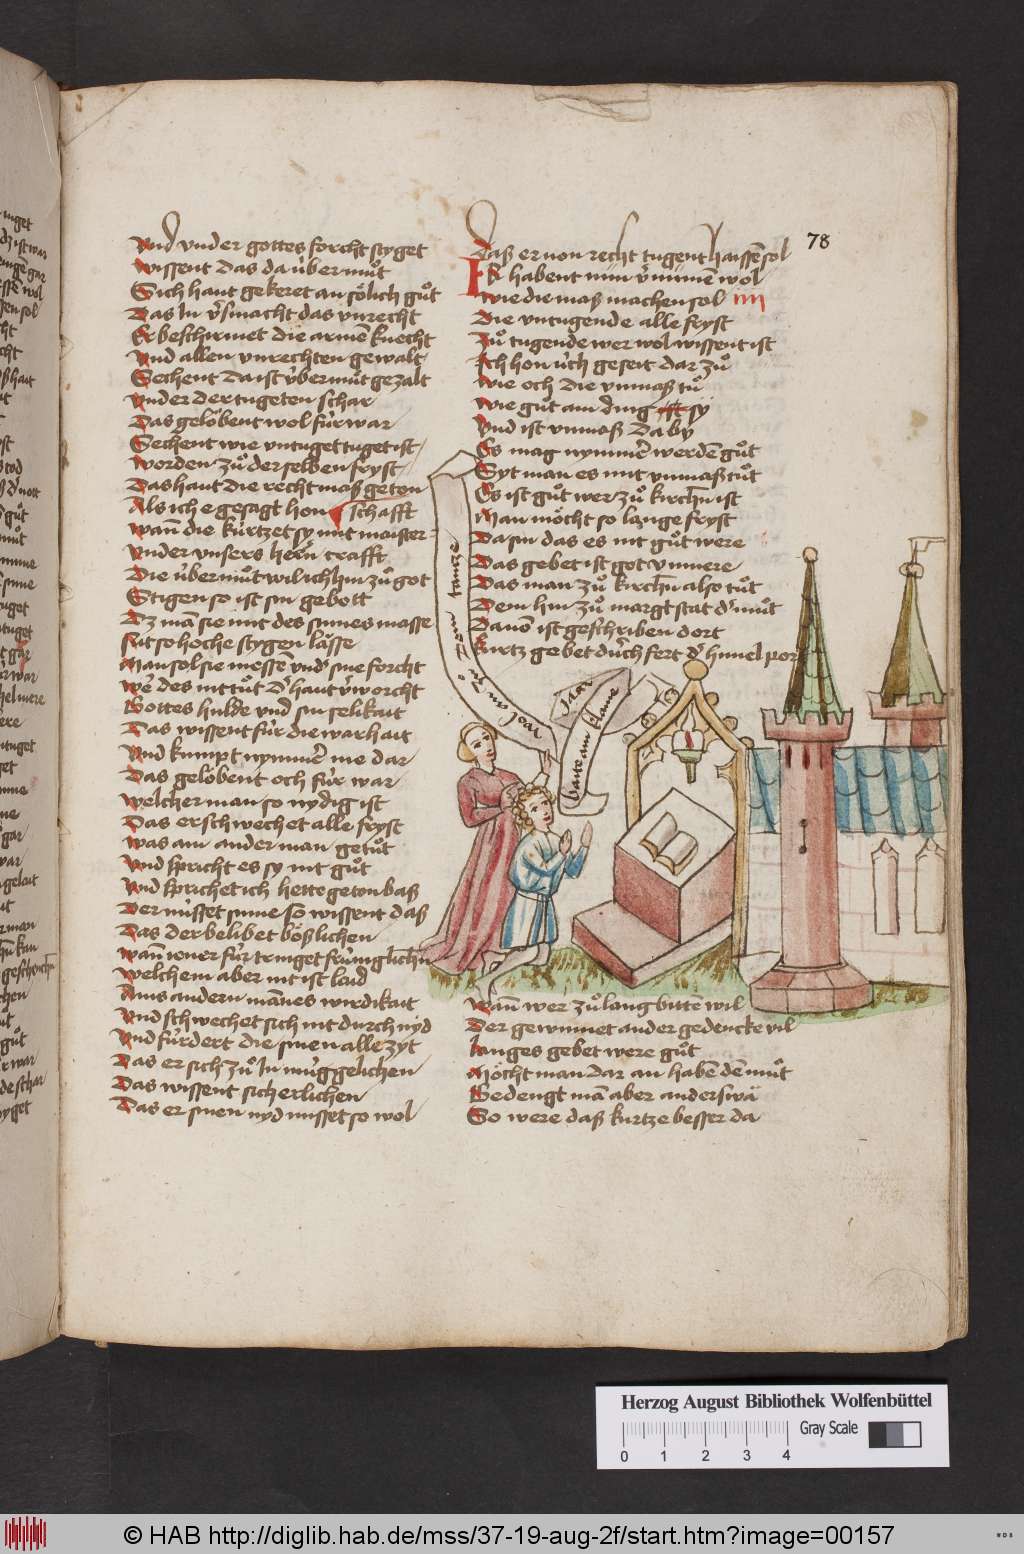 78
Vnd vnder gottes forcht styget
Wissent das da v̉ber mu̍t
Sich haut gekeret an sölich gůt
Das In v̄smacht das vnrecht
Er beschirmet die armē knecht
Vnd allen vnrechten gewalt
Sechent Da ist v̉ber můt gezalt
Vnder der tugeten schar
Das gelobent wol fu̍r war
Sechent wie vntuget tuget ist
Worden zů der selben fryst
Das haut die recht maß geton
Als ich e gesagt hon schafft
Wañ die ku̍rtzet sy mit maister
Vnder vnsers herñ crafft
Die v̉ber můt wil ich hin zů got
Stigen so ist sin gebott
Dz mā sie mit des sinnes masse
sut so hoche stygen lässe
Man sol sie messē vnd sine forcht
Wer des nit tůt D haut v̉worcht
Gottes hulde vnd sin selikait
Das wissent fu̍r die warhait
Vnd kumpt nymmē me dar
Das gelobent och fu̍r war
Welcher man so nydig ist
Das er schwechet alle fryst
Was ain ander man getůt
Vnd spricht es sy nit gůt
Vnd sprichet ich hette geton baß
Der misset sinne so wissent daß
Das der belibet bößlichen
Wañ iener fu̍r tringet fru̍mglichn
Welchem aber nit ist laid
Ains andern mānes wirdikait
Vnd schwechet sich nit durch nyd
Vnd fu̍rdert die sinen alle zyt
Das er sich zů In mu̍ggelichen
Das wissent sicherlichen
Das er sinen nyd misset so wol
Daß er von recht tugent haissē sol
IR habent nun v̄nimē wol
Wie die maß machen sol IIII
Die vntugende alle fryst
Zů tugende wer wol wissent ist
Ich hon u̍ch geseit dar zů
Wie och die vnmaß tů
Wie gůt ain ding ist sy
Vnd ist vnmaß Da by
Es mag nymmē werdē gůt
Syt man es mit vnmaß tůt
Es ist gůt wer zů kirchn ist
Man möcht so lange fryst
Da sin das es nit gůt were
Das gebet ist got vnmere
Das man zů kirchn also tůt
Dem hin zů margt stat d mu̍t
Dauō ist geschriben dort
Kurtz gebet du̍rch fert d himel port
Wañ wer zů lang bitte wil
Der gewinnet ander gedencke vil
Langes gebet were gůt
Möcht man dar an habē dē můt
Bedengt mā aber anderswä
So were daß kurtze besser da
baite ain klaine
Herzog August Bibliothek Wolfenbüttel
Gray Scale
0 1 2 3 4
© HAB http://diglib.hab.de/mss/37-19-aug-2f/start.htm?image=00157